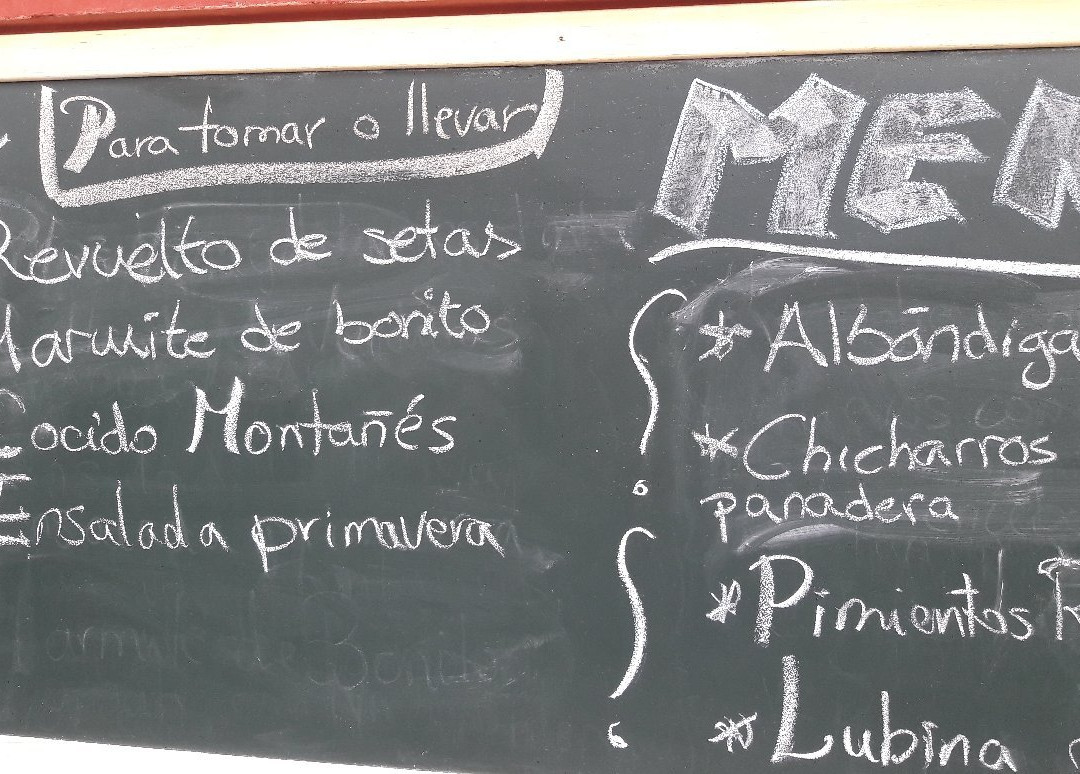 Para tomar o llevar
Revuelto de setas
Marmite de bonito
Cocido Montañés
Ensalada primavera
MEN
* Albóndiga
* Chicharros
panadera
6
* Pimientos
* Lubina
6